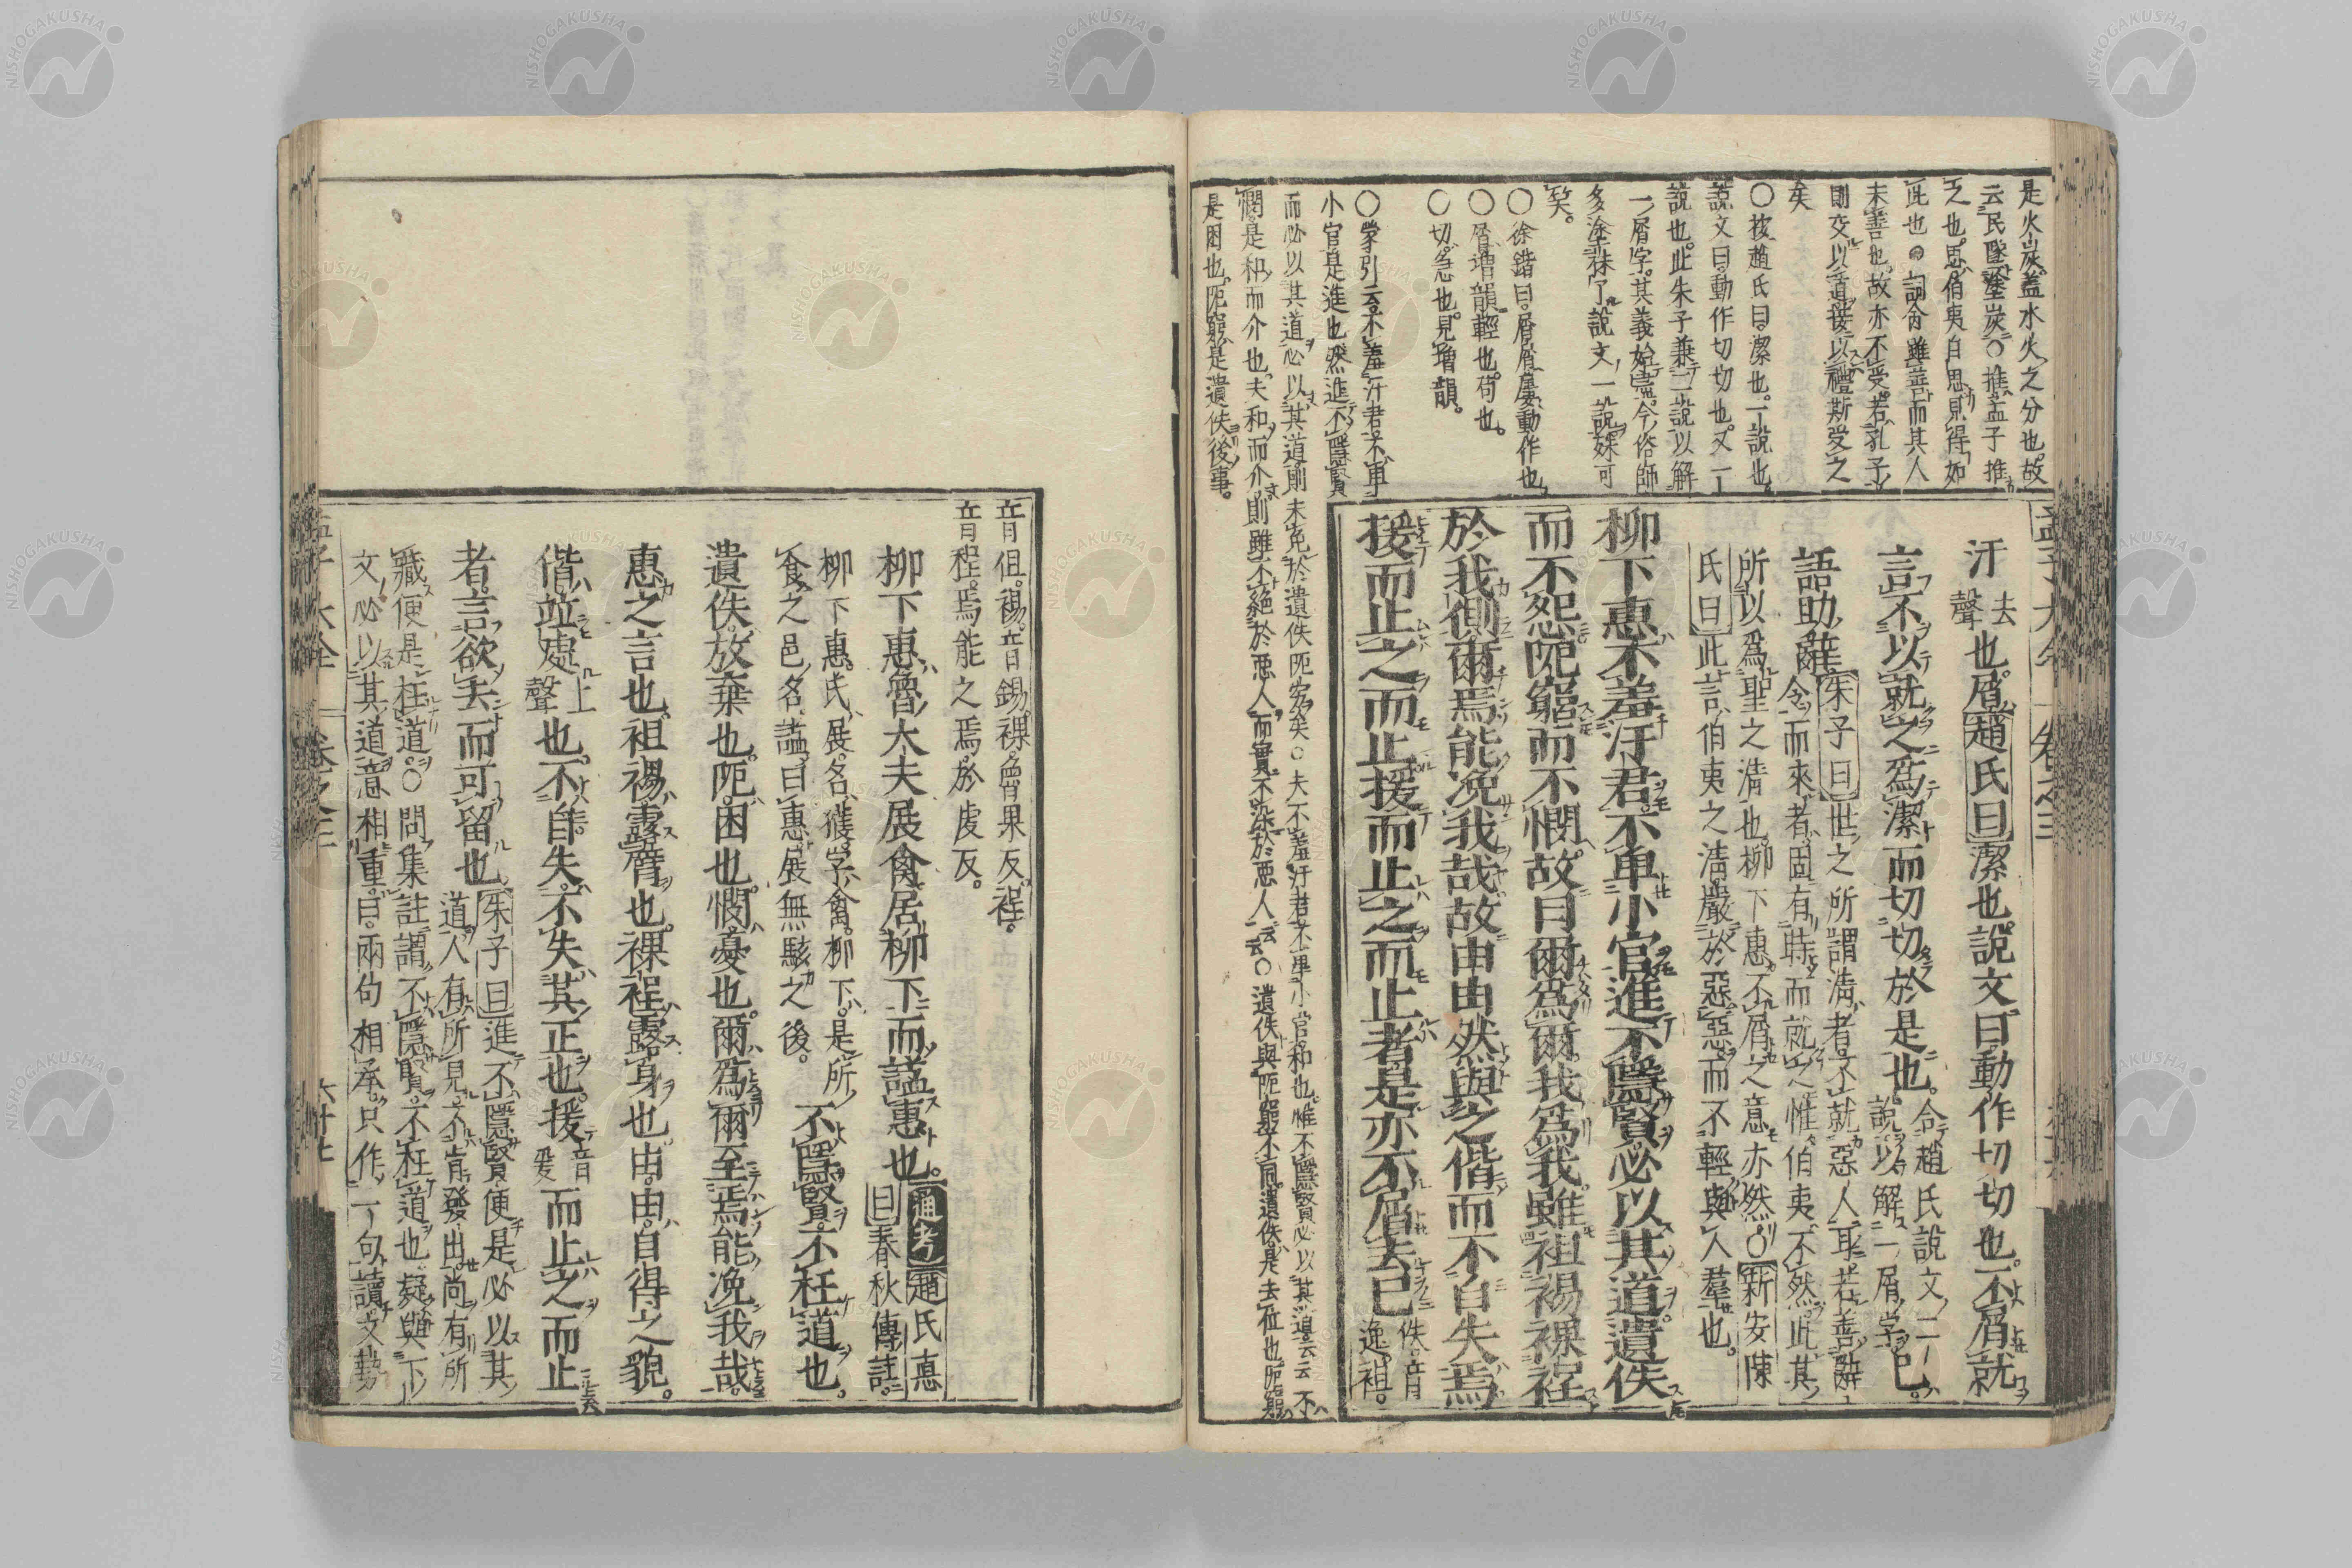 是火炭蓋水火之分也故
云民墜塗炭○推孟子推
之也思伯夷自思見得如
此也○詞命雖善而其人
未善也故亦不受若孔子
則交以道接以禮斯受之
矣
○按趙氏曰潔也一說也
說文曰動作切切也又一
說也此朱子兼二說以解
一屑字其義始盡今俗師
多塗抹了說文一說殊可
笑
○徐鍇曰屑屑屢動作也
○屑增韻輕也苟也
○切急也見增韻
○蒙引云不羞汙君不卑
小官是進也然進不隱賢
而必以其道必以其道則未免於遺佚阨窮矣○夫不羞汙君不卑小官和也惟不隱賢必以其道云云不
憫是和而介也夫和而介則雖不絕於惡人而實不染於惡人云云○遺佚與阨窮不同遺佚是去位也阨窮
是困也阨窮是遺佚後事
汙去聲也屑趙氏曰潔也說文曰動作切切也不屑就
言不以就之爲潔而切切於是也合趙氏說文二說以解一屑字已
語助辭朱子曰世之所謂清者不就惡人耳若善辭
令而來者固有時而就之惟伯夷不然此其
所以爲聖之清也柳下惠不屑之意亦然○新安陳
氏曰此言伯夷之清嚴於惡惡而不輕與人羣也
柳下惠不羞汙君不卑小官進不隱賢必以其道遺佚
而不怨阨窮而不憫故曰爾爲爾我爲我雖袒裼裸裎
於我側爾焉能浼我哉故由由然與之偕而不自失焉
援而止之而止援而止之而止者是亦不屑去已佚音逸袒
音但裼音錫裸魯果反裎
音程焉能之焉於虔反
柳下惠魯大夫展禽居柳下而謚惠也通考趙氏悳曰春秋傳註
柳下惠氏展名獲字禽柳下是所
食之邑名謚曰惠展無駭之後不隱賢不枉道也
遺佚放棄也阨困也憫憂也爾爲爾至焉能浼我哉
惠之言也袒裼露臂也裸裎露身也由由自得之貌
偕並處上聲也不自失不失其正也援音爰而止之而止
者言欲去而可留也朱子曰進不隱賢便是必以其
道人有所見不肯發出尚有所
藏便是枉道○問集註謂不隱賢不枉道也疑與下
文必以其道意相重曰兩句相承只作一句讀文勢
孟子大全 卷之三 六十七